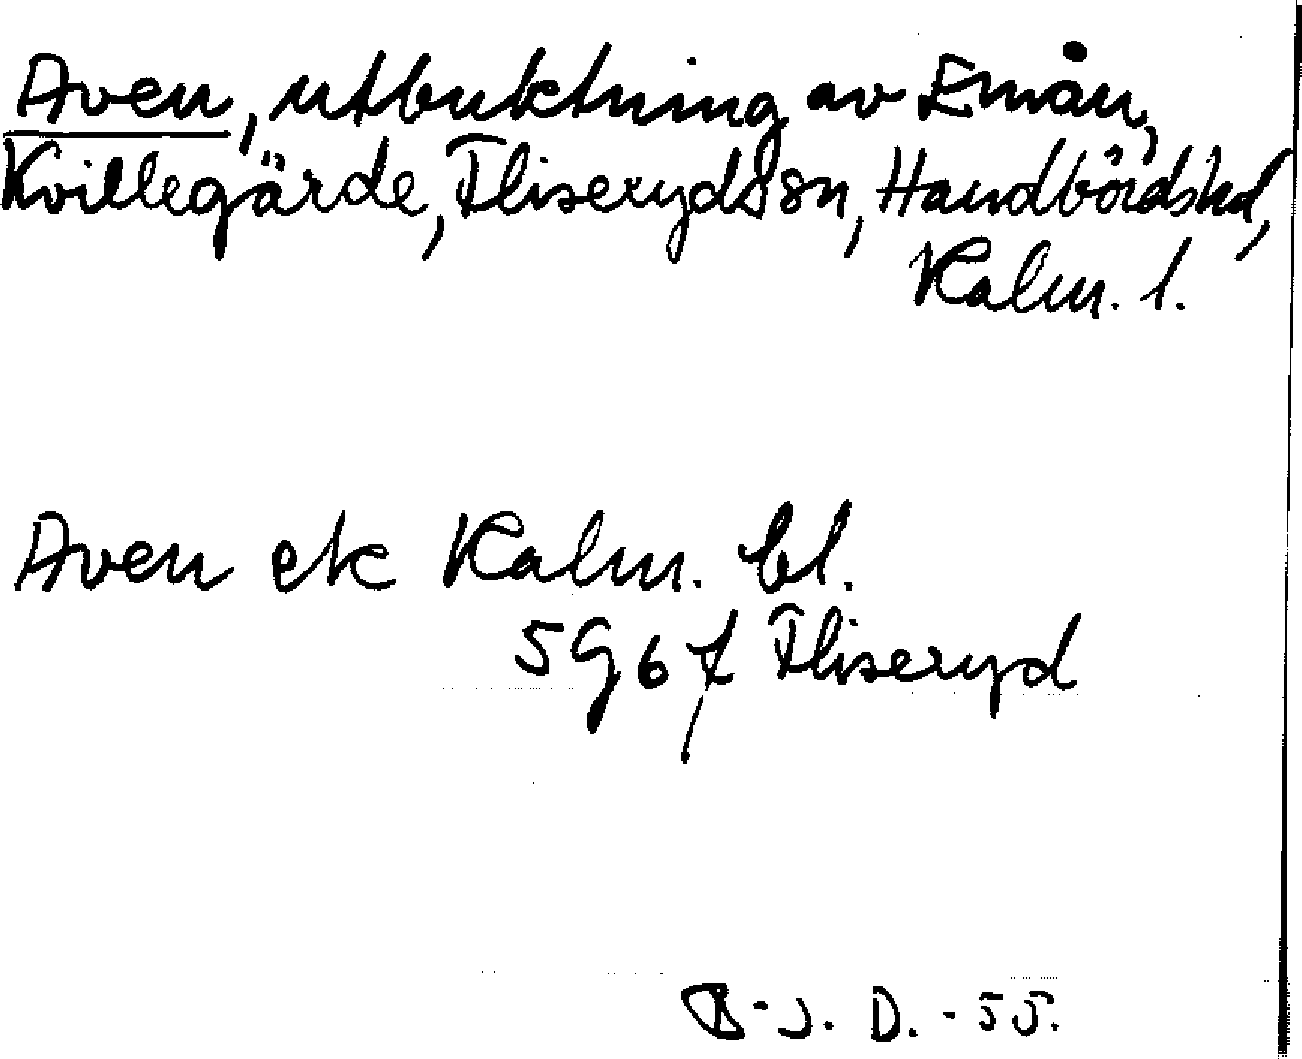 Aven, utbuktning av Emån,
Kvillegärde, Fliseryds sn, Handbörds hd,
Kalm. l.
Aven ek Kalm. bl.
5967 Fliseryd
B-J. D. - 55.